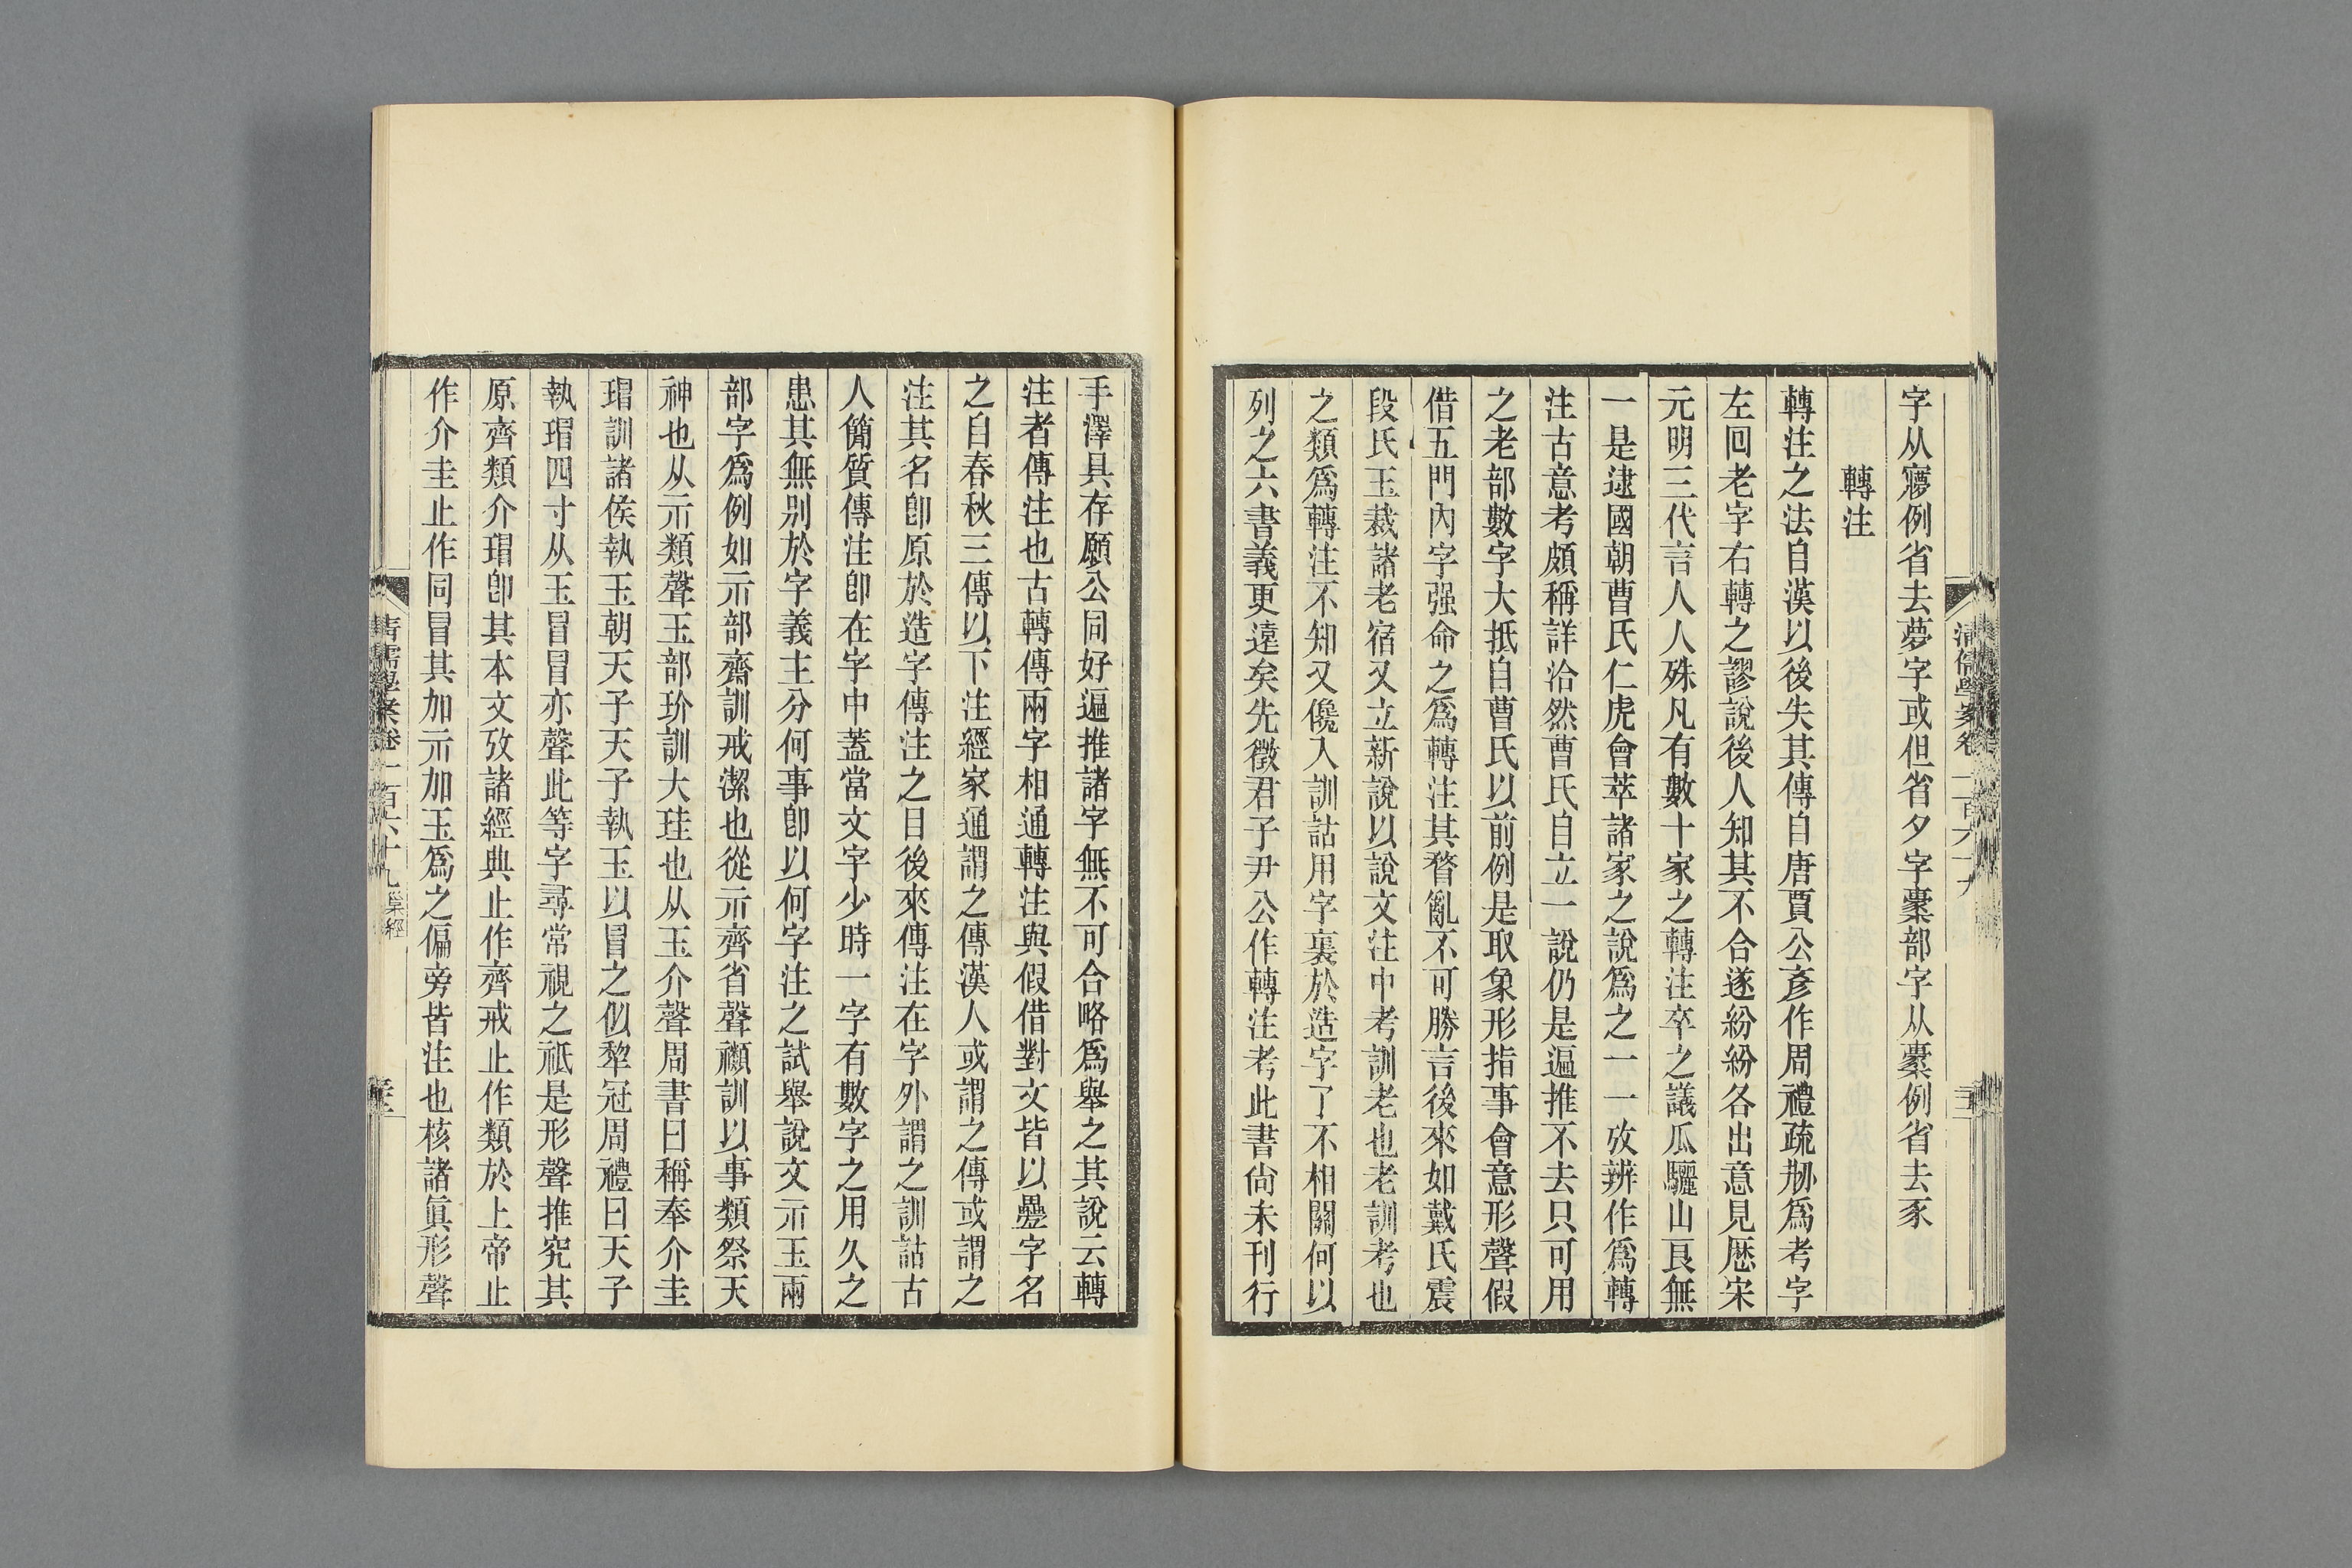 字从㝱例省去夢字或但省夕字橐部字从橐例省去豕
轉注
轉注之法自漢以後失其傳自唐賈公彥作周禮疏刱爲考字
左回老字右轉之謬說後人知其不合遂紛紛各出意見歷宋
元明三代言人人殊凡有數十家之轉注卒之議瓜驪山㫐無
一是逮國朝曹氏仁虎會萃諸家之說爲之一一攷辨作爲轉
注古意考頗稱詳洽然曹氏自立一說仍是遍推不去只可用
之老部數字大抵自曹氏以前例是取象形指事會意形聲假
借五門內字强命之爲轉注其瞀亂不可勝言後來如戴氏震
段氏玉裁諸老宿又立新說以說文注中考訓老也老訓考也
之類爲轉注不知又儳入訓詁用字裏於造字了不相關何以
列之六書義更遠矣先徵君子尹公作轉注考此書尙未刊行
手澤具存願公同好遍推諸字無不可合略爲舉之其說云轉
注者傳注也古轉傳兩字相通轉注與假借對文皆以疊字名
之自春秋三傳以下注經家通謂之傳漢人或謂之傳或謂之
注其名卽原於造字傳注之目後來傳注在字外謂之訓詁古
人簡質傳注卽在字中蓋當文字少時一字有數字之用久之
患其無別於字義主分何事卽以何字注之試舉說文示玉兩
部字爲例如示部齋訓戒潔也從示齊省聲禷訓以事類祭天
神也从示類聲玉部玠訓大珪也从玉介聲周書曰稱奉介圭
瑁訓諸侯執玉朝天子天子執玉以冒之似犂冠周禮曰天子
執瑁四寸从玉冒冒亦聲此等字尋常視之祗是形聲推究其
原齊類介瑁卽其本文攷諸經典止作齊戒止作類於上帝止
作介圭止作同冒其加示加玉爲之偏旁皆注也核諸眞形聲
清儒學案卷一百六十九 巢經